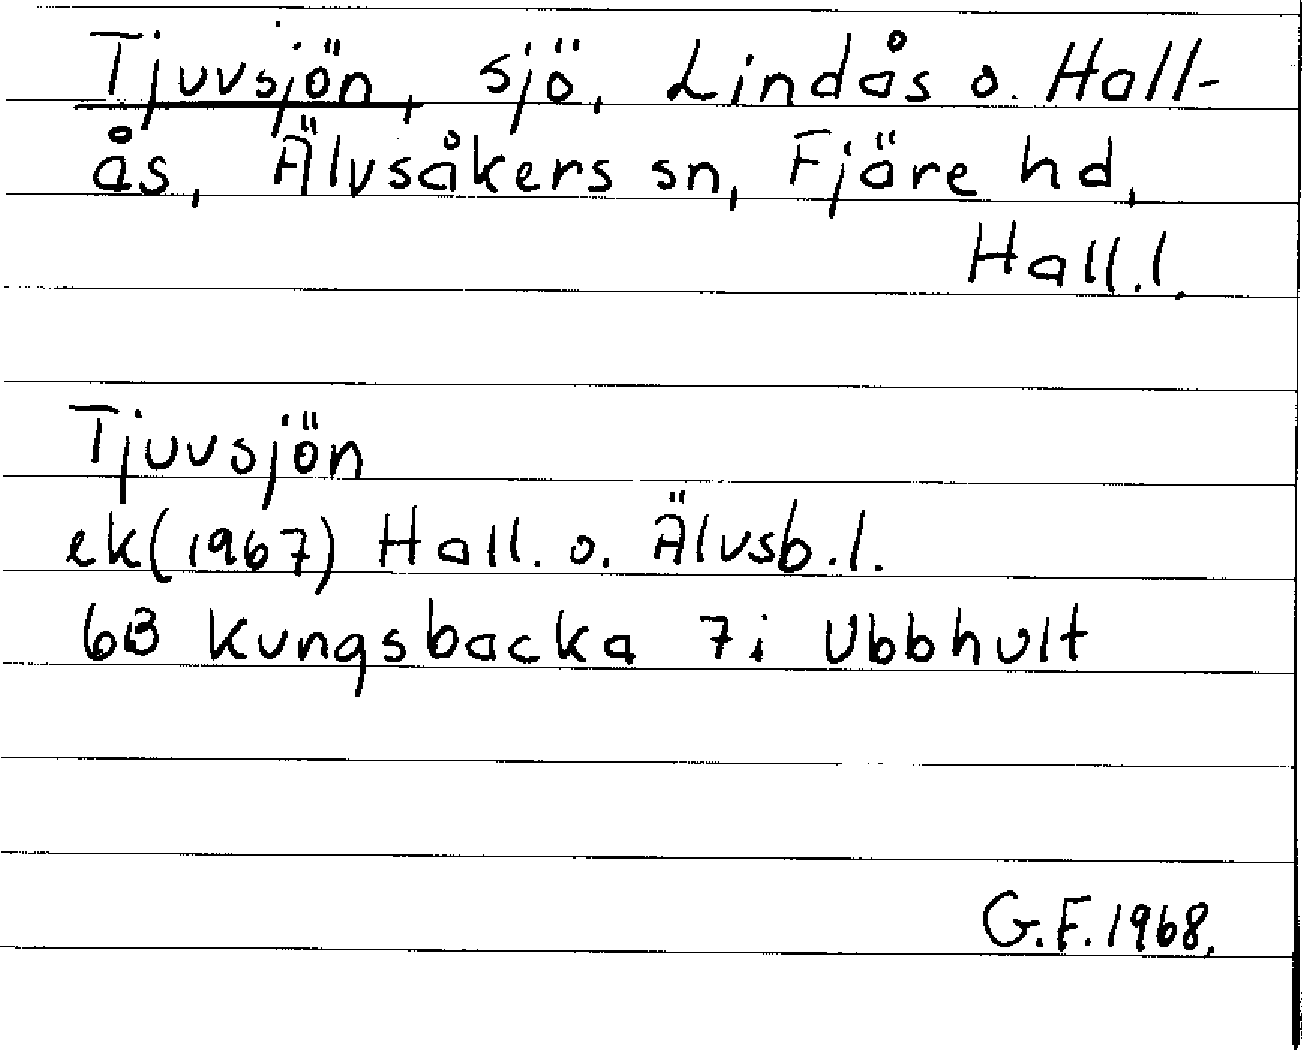 Tjuvsjön, sjö, Lindås o. Hall-
ås, Älvsåkers sn, Fjäre hd,
Hall.l.
Tjuvsjön
ek(1967) Hall. o. Älvsb.l.
6B Kungsbacka 7i Ubbhult
G.F. 1968.